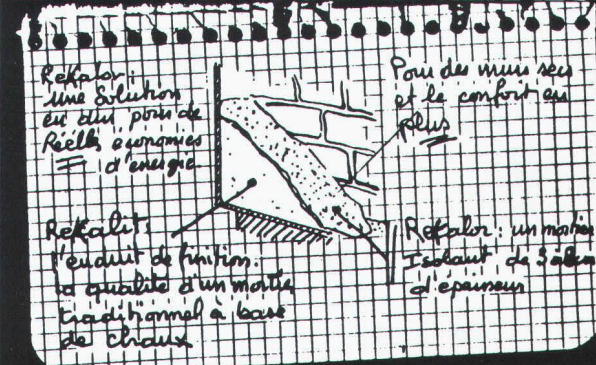 Rekalor :
une Solution
en dur pour de
Réelles économies
d'énergie
Pour des murs secs
et le confort en
plus
Rekalit :
l'enduit de finition.
la qualité d'un mortier
traditionnel à base
de chaux
Rekalor : un mortier
Isolant de
d'épaisseur